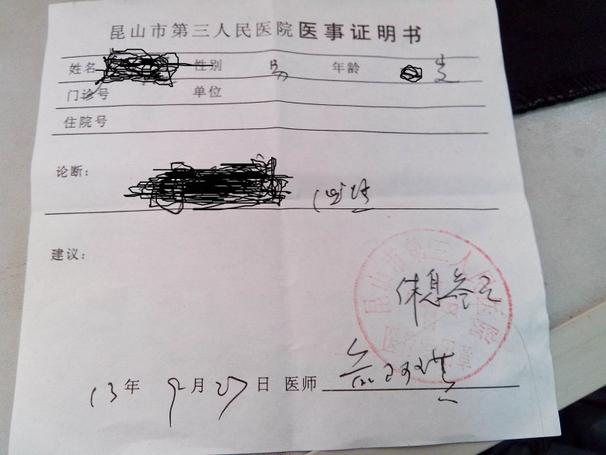 昆山市第三人民医院医事证明书
姓名 性别 男 年龄 岁
门诊号 单位
住院号
论断:
建议:
昆山市第三人民医院
休息叁天
13年9月27日 医师